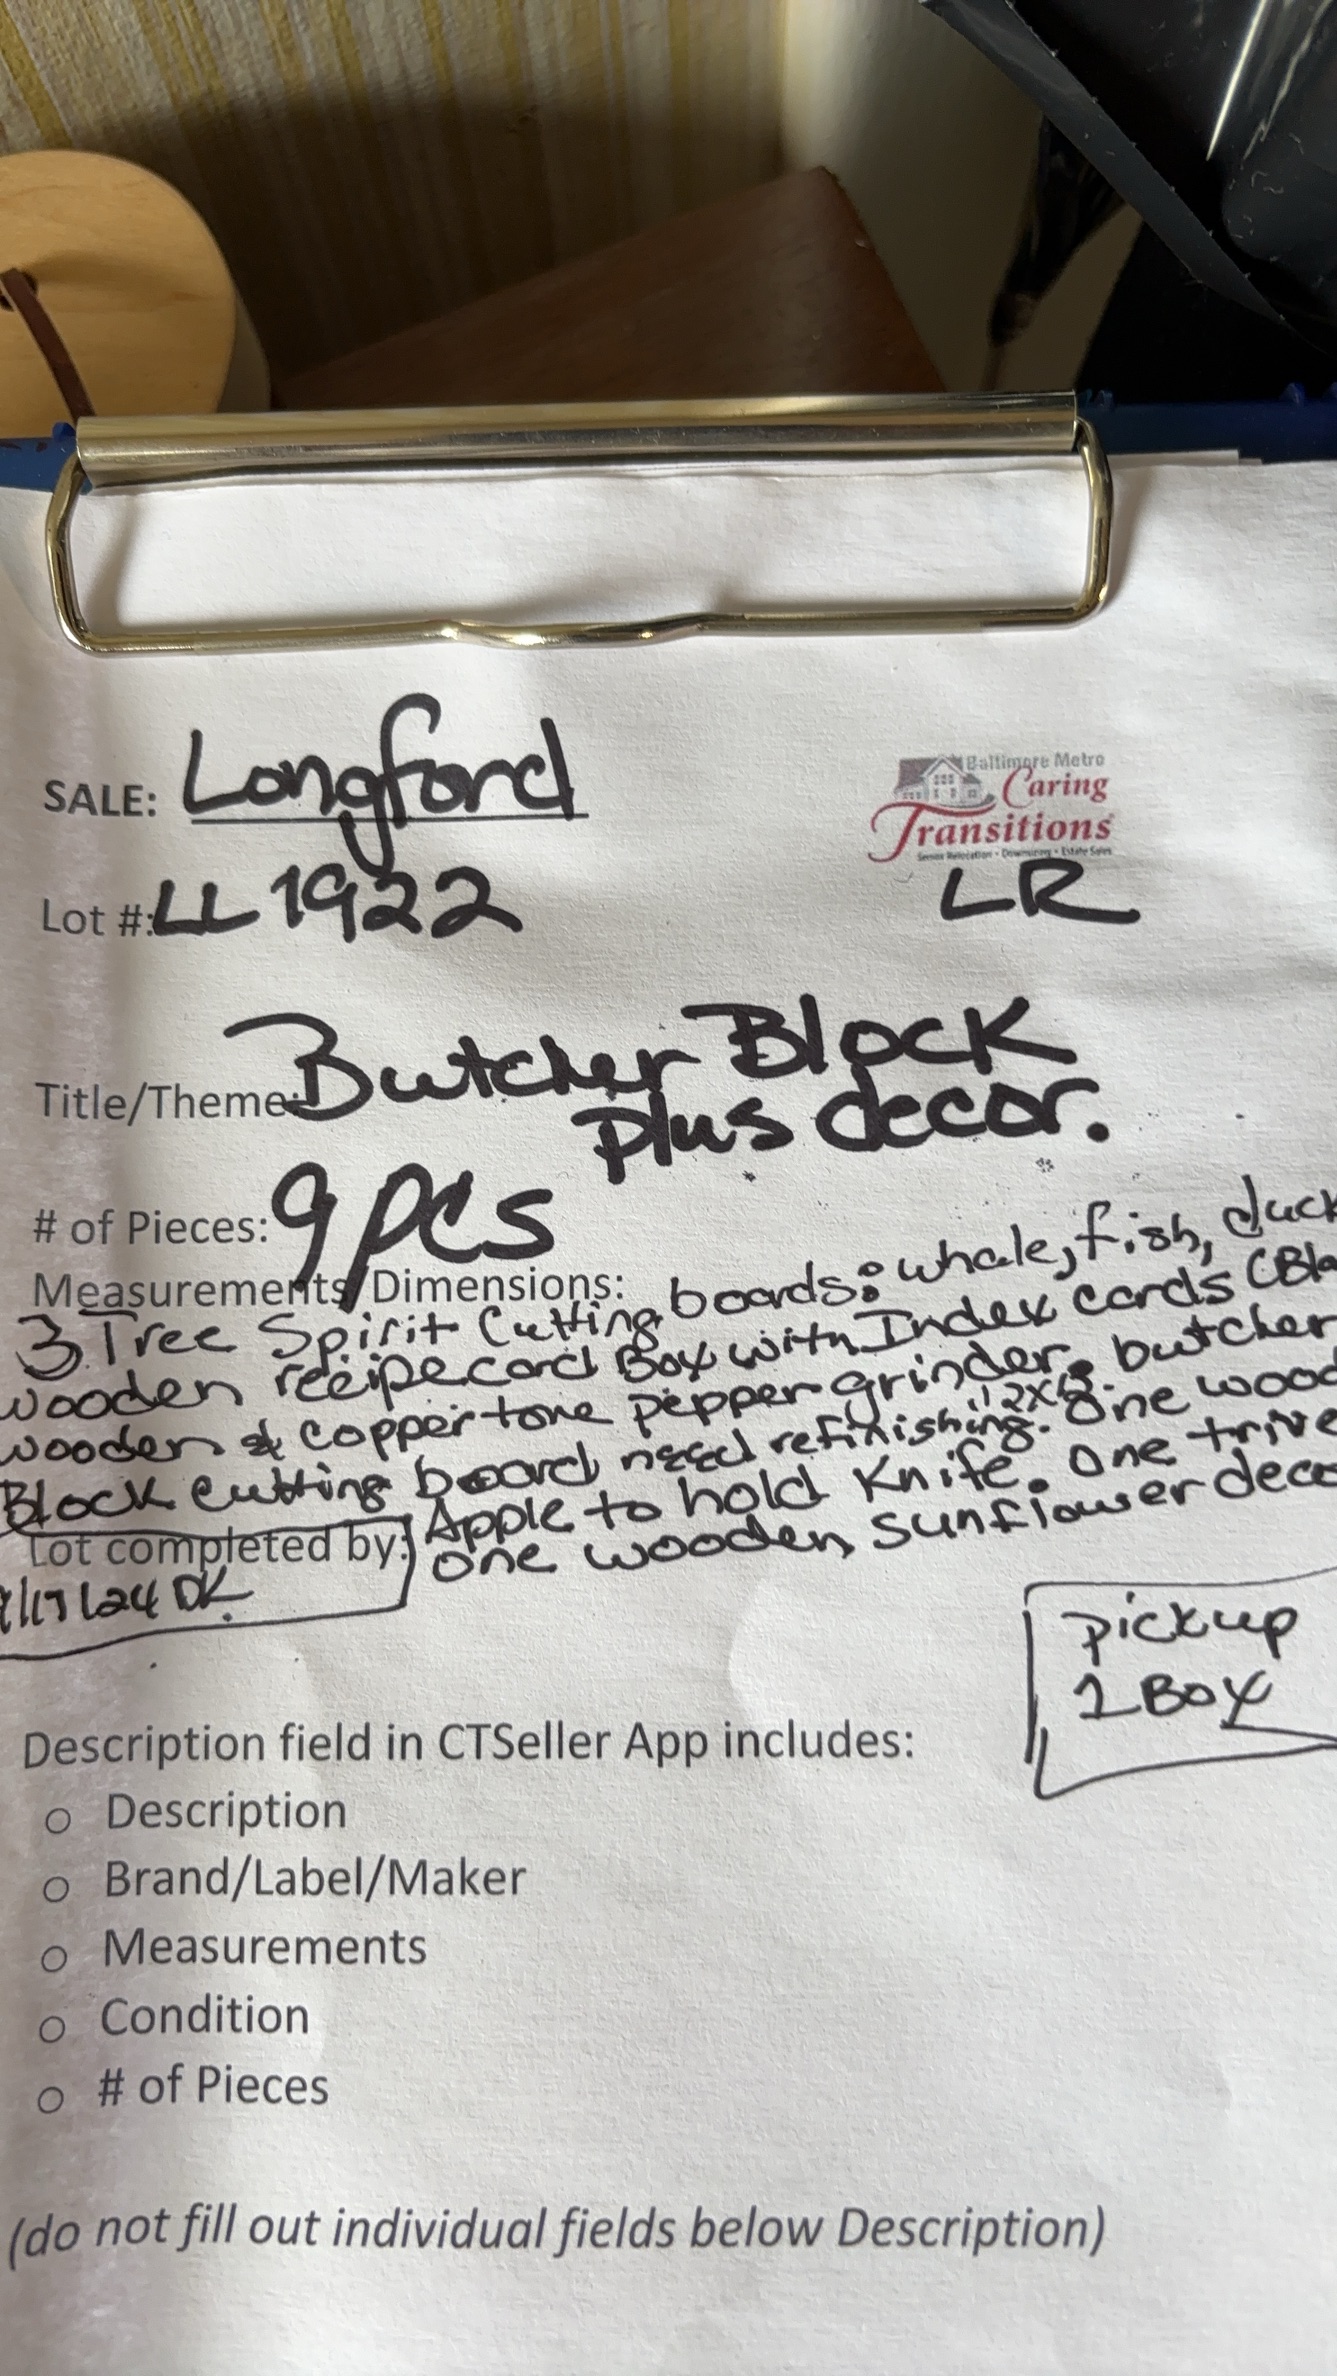 SALE: Longford
Baltimore Metro
Caring
Transitions
Senior Relocation • Downsizing • Estate Sales
Lot #: LL1922
LR
Title/Theme: Butcher Block
plus decor.
# of Pieces: 9 pcs
Measurements/Dimensions:
3 Tree Spirit Cutting boards: whale, fish, duck
wooden recipe card Box with Index cards (Bla
wooden & copper tone pepper grinder. butcher
Block cutting board need refinishing. One wood
Apple to hold Knife. One trive
one wooden sunflower deco
Lot completed by:
/17/24 DK
pickup
1 Box
Description field in CTSeller App includes:
o Description
o Brand/Label/Maker
o Measurements
o Condition
o # of Pieces
(do not fill out individual fields below Description)